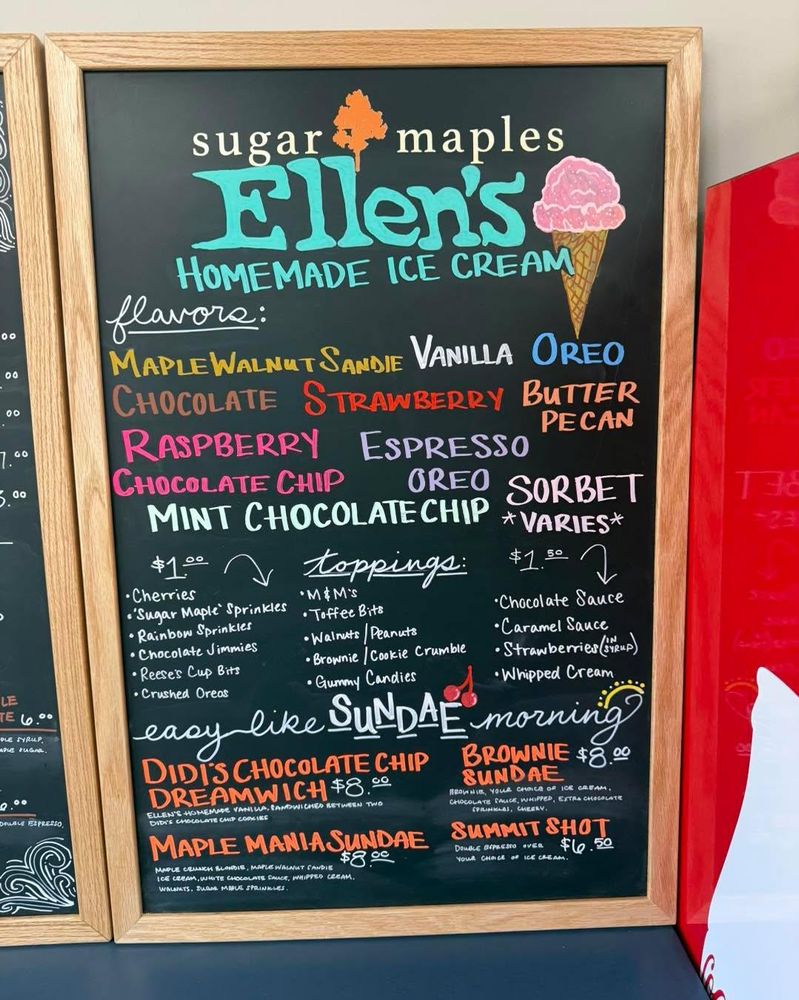 sugar maples
Ellen's
HOMEMADE ICE CREAM
flavors:
MAPLE WALNUT SANDIE VANILLA OREO
CHOCOLATE STRAWBERRY BUTTER PECAN
RASPBERRY CHOCOLATE CHIP ESPRESSO OREO
MINT CHOCOLATE CHIP SORBET *VARIES*
toppings:
$1.00
•Cherries
•"Sugar Maple" Sprinkles
•Rainbow Sprinkles
•Chocolate Jimmies
•Reese's Cup Bits
•Crushed Oreos
•M&M's
•Toffee Bits
•Walnuts/Peanuts
•Brownie/Cookie Crumble
•Gummy Candies
$1.50
•Chocolate Sauce
•Caramel Sauce
•Strawberries (IN SYRUP)
•Whipped Cream
easy like SUNDAE morning
DIDI'S CHOCOLATE CHIP
DREAMWICH $8.00
ELLEN'S HOMEMADE VANILLA, SANDWICHED BETWEEN TWO
DIDI'S CHOCOLATE CHIP COOKIES
BROWNIE $8.00
SUNDAE
BROWNIE, YOUR CHOICE OF ICE CREAM,
CHOCOLATE SAUCE, WHIPPED, EXTRA CHOCOLATE
SPRINKLES, CHERRY.
MAPLE MANIA SUNDAE
$8.00
MAPLE CRUNCH BLONDIE, MAPLE WALNUT SANDIE
ICE CREAM, WHITE CHOCOLATE SAUCE, WHIPPED CREAM,
WALNUTS, SUGAR MAPLE SPRINKLES.
SUMMIT SHOT
$6.50
DOUBLE ESPRESSO OVER
YOUR CHOICE OF ICE CREAM.
6.00
DOUBLE ESPRESSO,